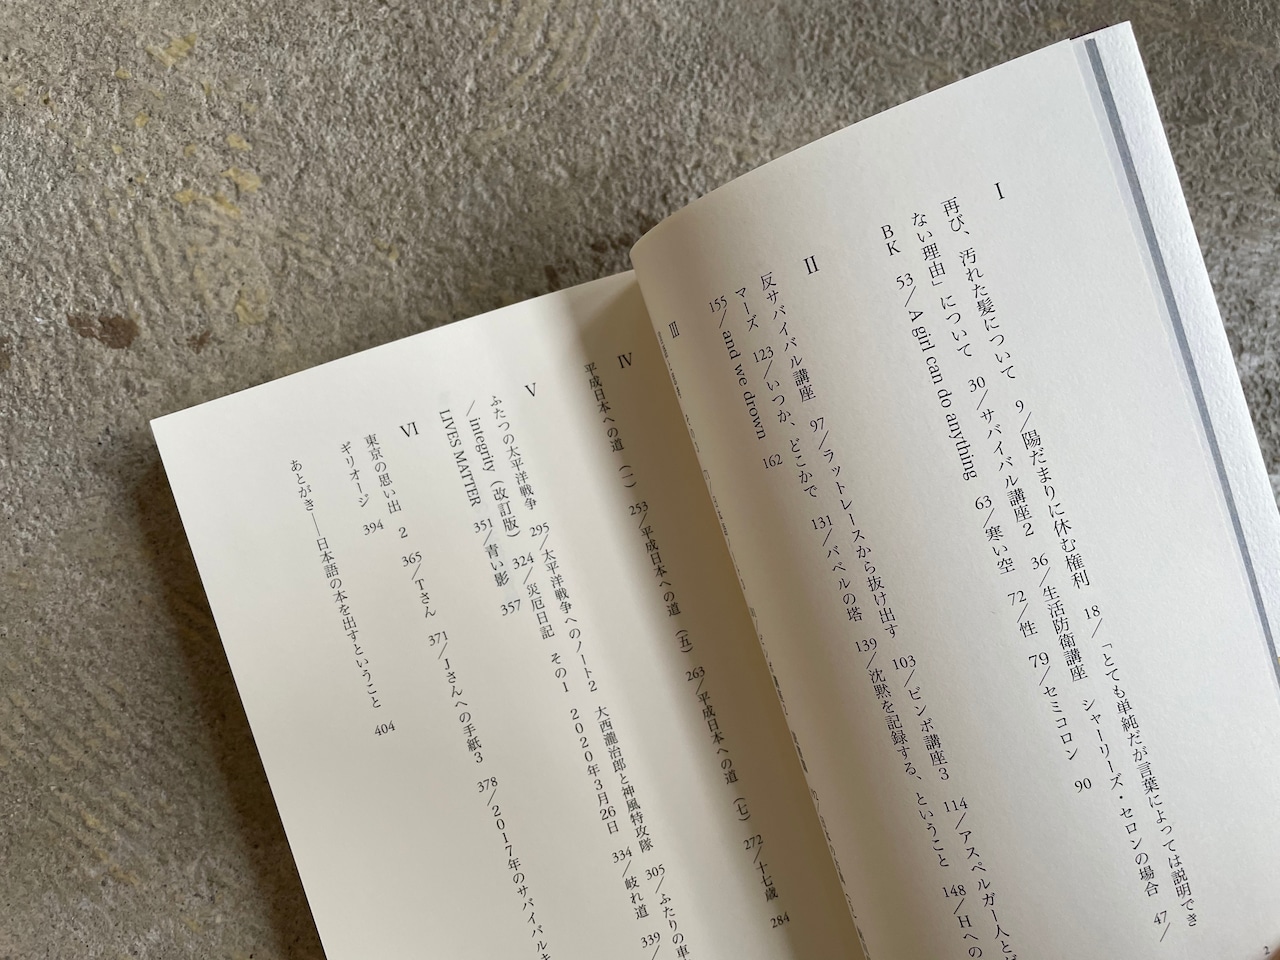 I
再び、汚れた髪について 9／陽だまりに休む権利 18／「とても単純だが言葉によっては説明でき
ない理由」について 30／サバイバル講座2 36／生活防衛講座 シャーリーズ・セロンの場合 47／
BK 53／A girl can do anything 63／寒い空 72／性 79／セミコロン 90
II
反サバイバル講座 97／ラットレースから抜け出す 103／ビンボ講座3 114／アスペルガー人と
マーズ 123／いつか、どこかで 131／バベルの塔 139／沈黙を記録する、ということ 148／Hへの
155／and we drown 162
III
IV
平成日本への道（一） 253／平成日本への道（五） 263／平成日本への道（七） 272／十七歳 284
V
ふたつの太平洋戦争 295／太平洋戦争へのノート2 大西瀧治郎と神風特攻隊 305／ふたりの車
／integrity（改訂版） 324／災厄日記 その1 2020年3月26日 334／岐れ道 339／
LIVES MATTER 351／青い影 357
VI
東京の思い出 2 365／Tさん 371／Jさんへの手紙3 378／2017年のサバイバルキ
ギリオージ 394
あとがき――日本語の本を出すということ 404
2